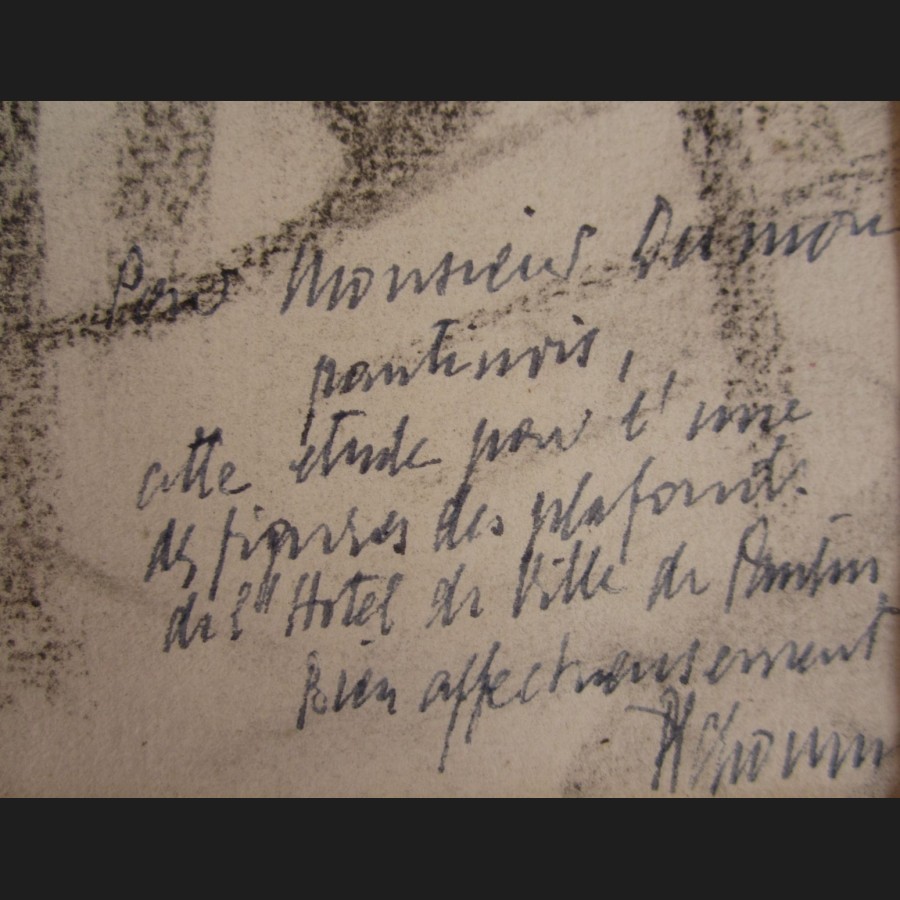 Pour Monsieur Dumon
pantinois,
cette étude pour l'une
des figures des plafonds
de l'Hotel de Ville de Pantin
Bien affectueusement